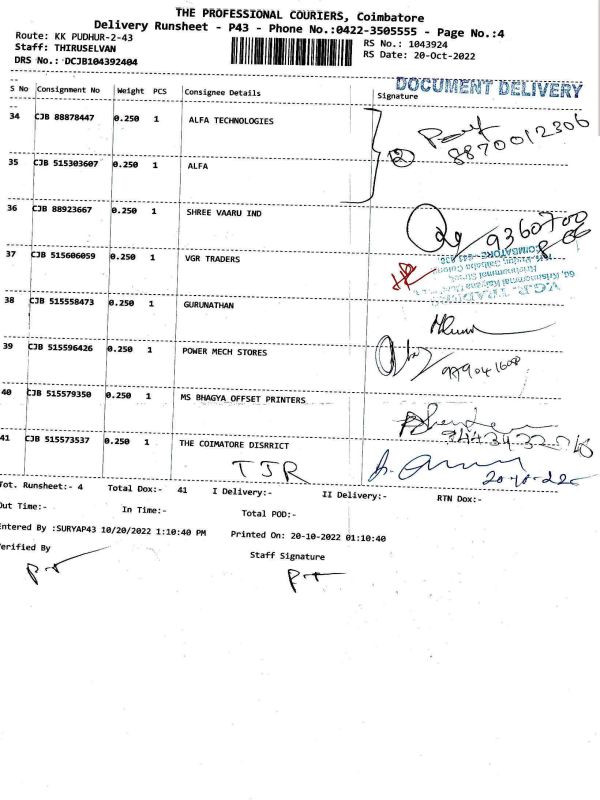 THE PROFESSIONAL COURIERS, Coimbatore
Delivery Runsheet - P43 - Phone No.:0422-3505555 - Page No.:4
Route: KK PUDHUR-2-43
RS No.: 1043924
Staff: THIRUSELVAN
RS Date: 20-Oct-2022
DRS No.: DCJB104392404
DOCUMENT DELIVERY
S No Consignment No Weight PCS Consignee Details Signature
34 CJB 88878447 0.250 1 ALFA TECHNOLOGIES
8870012306
2
35 CJB 515303607 0.250 1 ALFA
36 CJB 88923667 0.250 1 SHREE VAARU IND
9360700
37 CJB 515606059 0.250 1 VGR TRADERS
V.G.R. TRADERS
COIMBATORE
38 CJB 515558473 0.250 1 GURUNATHAN
39 CJB 515596426 0.250 1 POWER MECH STORES
40 CJB 515579350 0.250 1 MS BHAGYA OFFSET PRINTERS
41 CJB 515573537 0.250 1 THE COIMATORE DISRRICT
TJR
20-10-22
Tot. Runsheet:- 4 Total Dox:- 41 I Delivery:- II Delivery:- RTN Dox:-
Out Time:- In Time:- Total POD:-
Entered By :SURYAP43 10/20/2022 1:10:40 PM Printed On: 20-10-2022 01:10:40
Verified By Staff Signature